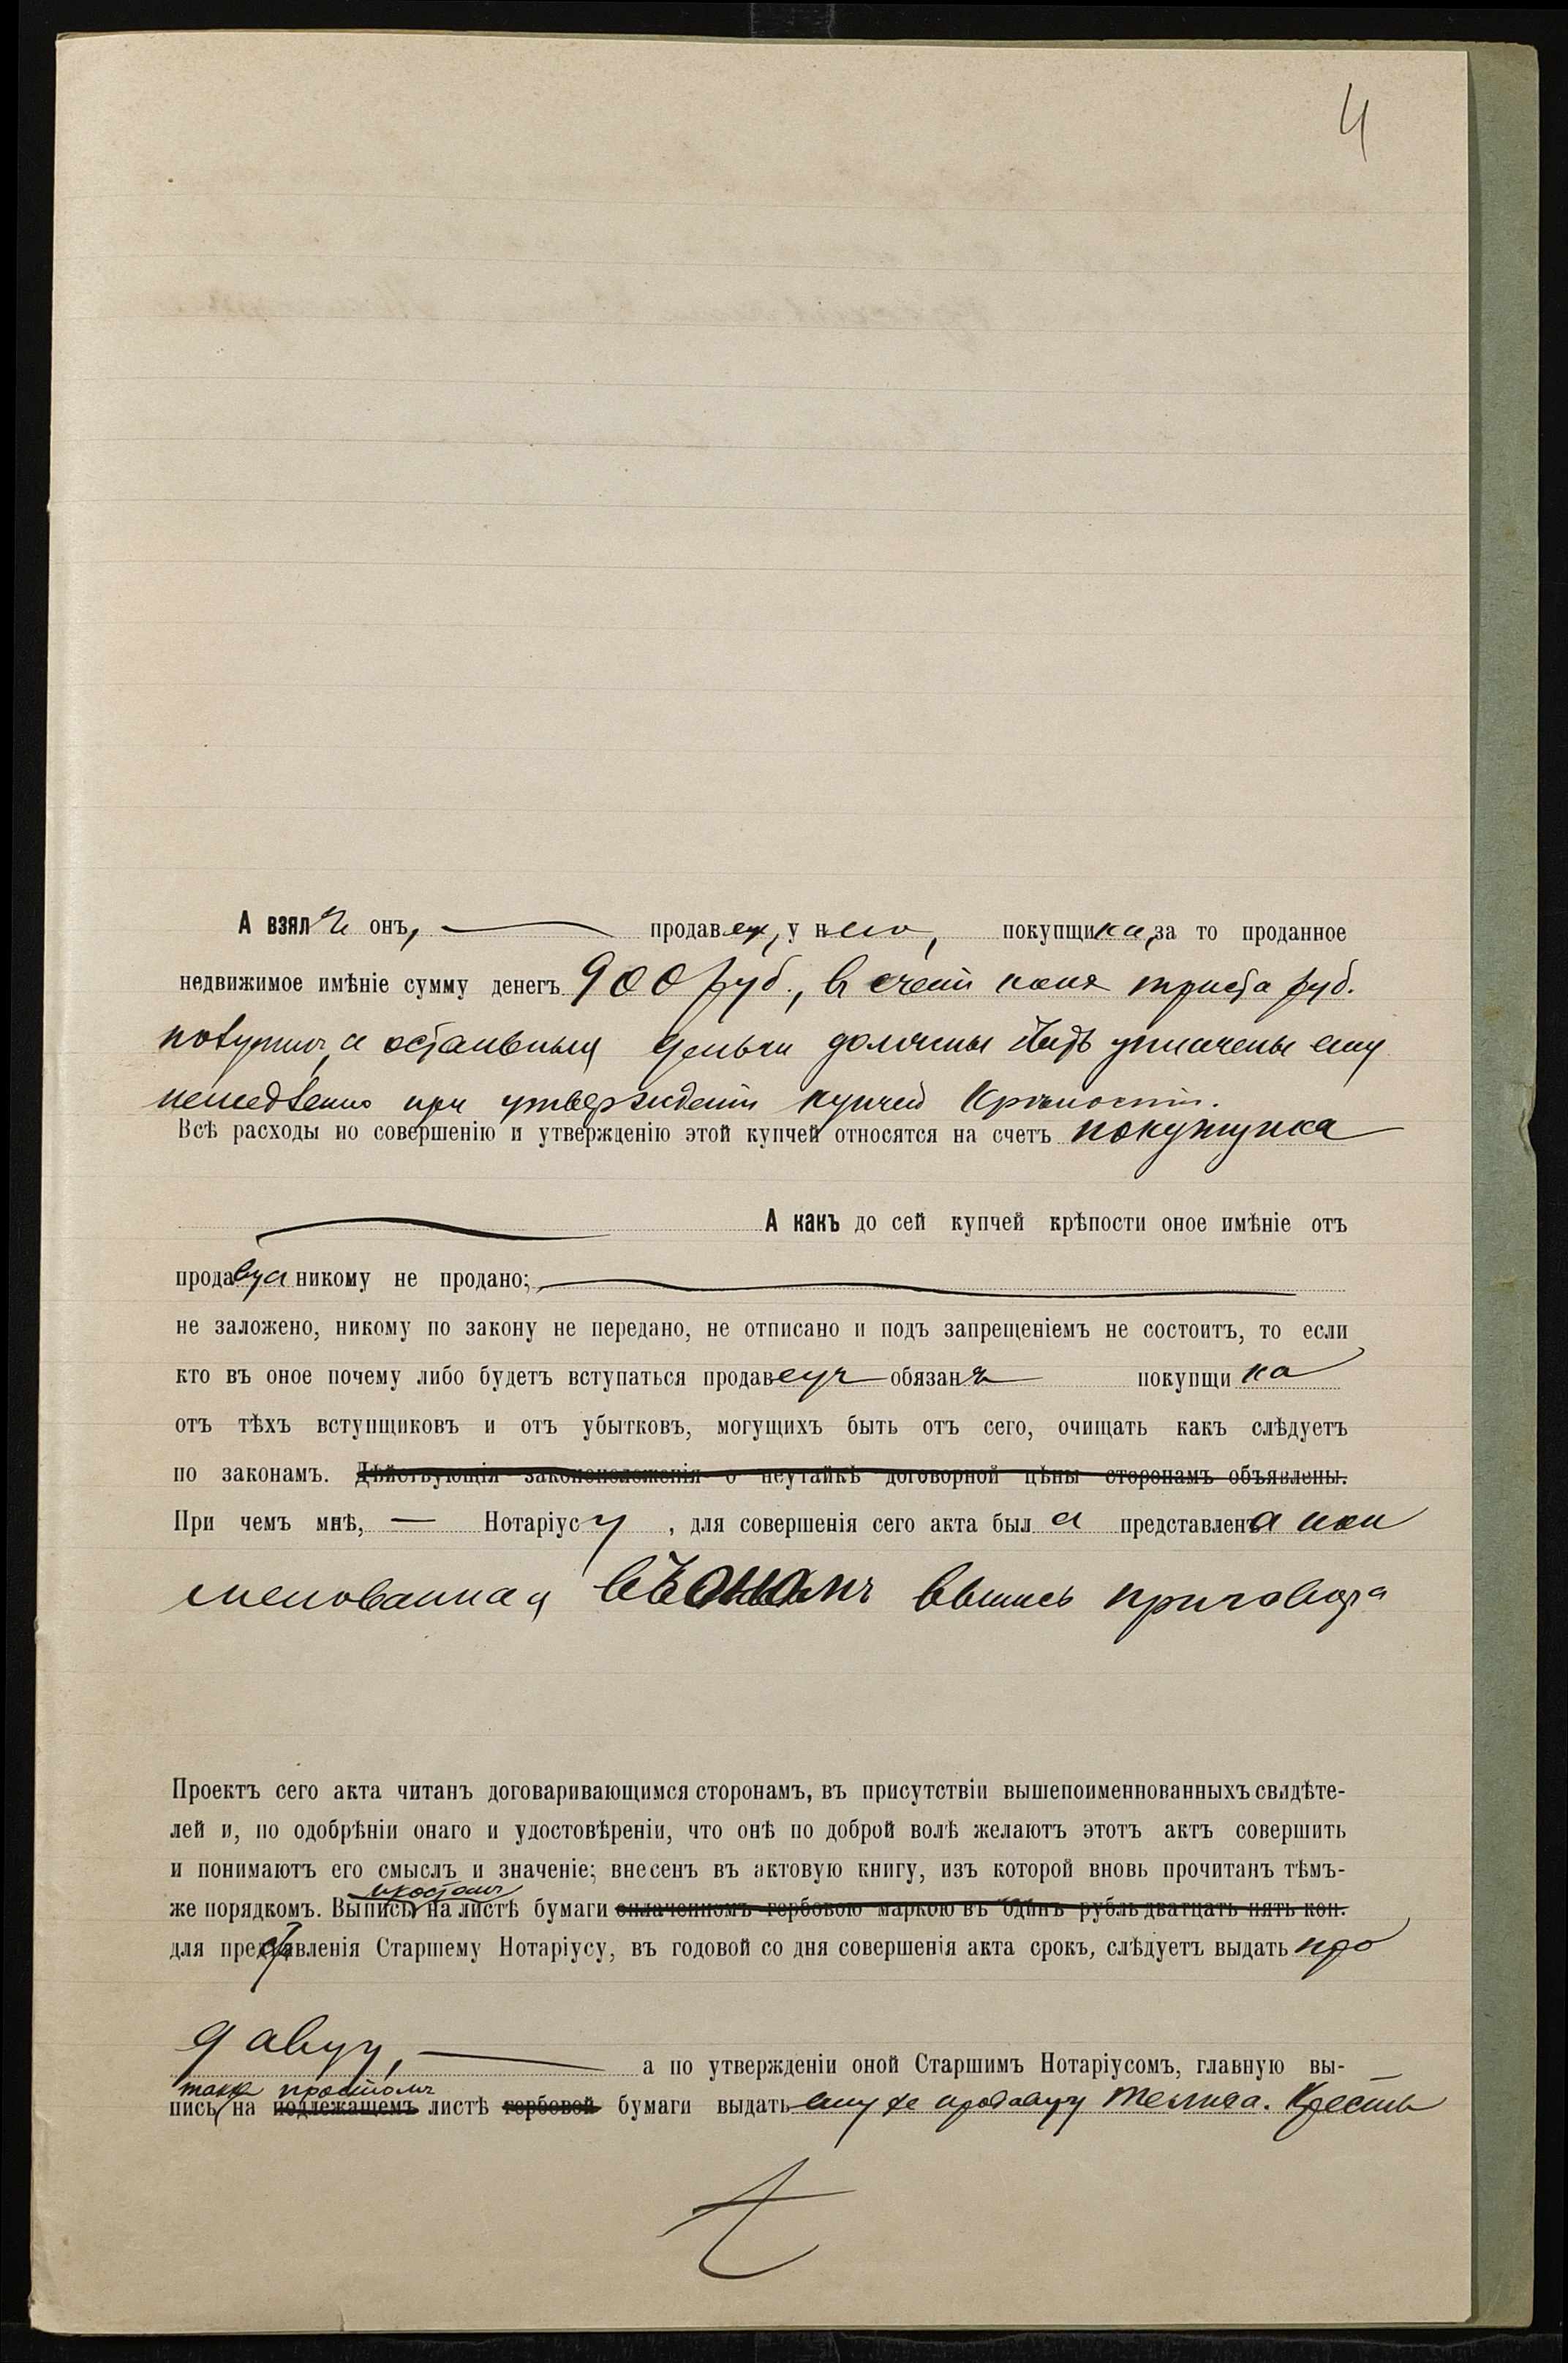 4
А взялъ онъ, продавец, у него, покупщика, за то проданное
недвижимое имѣніе сумму денегъ 900 руб., въ счетъ коихъ триста руб.
получилъ, а остальныя деньги должны быть уплачены ему
немедленно при утвержденіи купчей крѣпости.
Всѣ расходы по совершенію и утвержденію этой купчей относятся на счетъ покупщика
А какъ до сей купчей крѣпости оное имѣніе отъ
продавца никому не продано;
не заложено, никому по закону не передано, не отписано и подъ запрещеніемъ не состоитъ, то если
кто въ оное почему либо будетъ вступаться продавецъ обязанъ покупщика
отъ тѣхъ вступщиковъ и отъ убытковъ, могущихъ быть отъ сего, очищать какъ слѣдуетъ
по законамъ. Дѣйствующія законоположенія о неутайкѣ договорной цѣны сторонамъ объявлены.
При чемъ мнѣ, Нотаріусу, для совершенія сего акта была представлена пои
менованная выпись приговора
Проектъ сего акта читанъ договаривающимся сторонамъ, въ присутствіи вышепоименнованныхъ свидѣте-
лей и, по одобрѣніи онаго и удостовѣреніи, что онѣ по доброй волѣ желаютъ этотъ актъ совершить
и понимаютъ его смыслъ и значеніе; внесенъ въ актовую книгу, изъ которой вновь прочитанъ тѣмъ-
простомъ
же порядкомъ. Выпись на листѣ бумаги оплаченномъ гербовою маркою въ одинъ рубль двадцать пять коп.
для представленія Старшему Нотаріусу, въ годовой со дня совершенія акта срокъ, слѣдуетъ выдать про
давцу, а по утвержденіи оной Старшимъ Нотаріусомъ, главную вы-
простомъ
пись на подлежащемъ листѣ гербовой бумаги выдать ему же продавцу